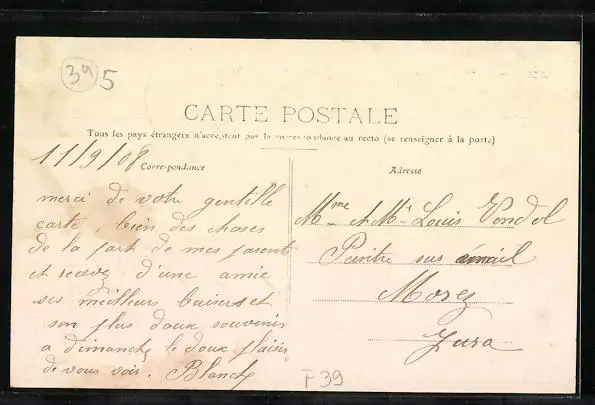 39 5
CARTE POSTALE
Tous les pays étrangers n'acceptent pas la correspondance au recto (se renseigner à la poste)
11/9/08
Correspondance
Adresse
merci de votre gentille
carte, bien des choses
de la part de mes parents
et recevez d'une amie
ses meilleurs baisers et
son plus doux souvenir
a dimanche le doux plaisir
de vous voir. Blanche
Mme et Mr Louis Vendel
Peintre sur émail
Morez
Jura
F39